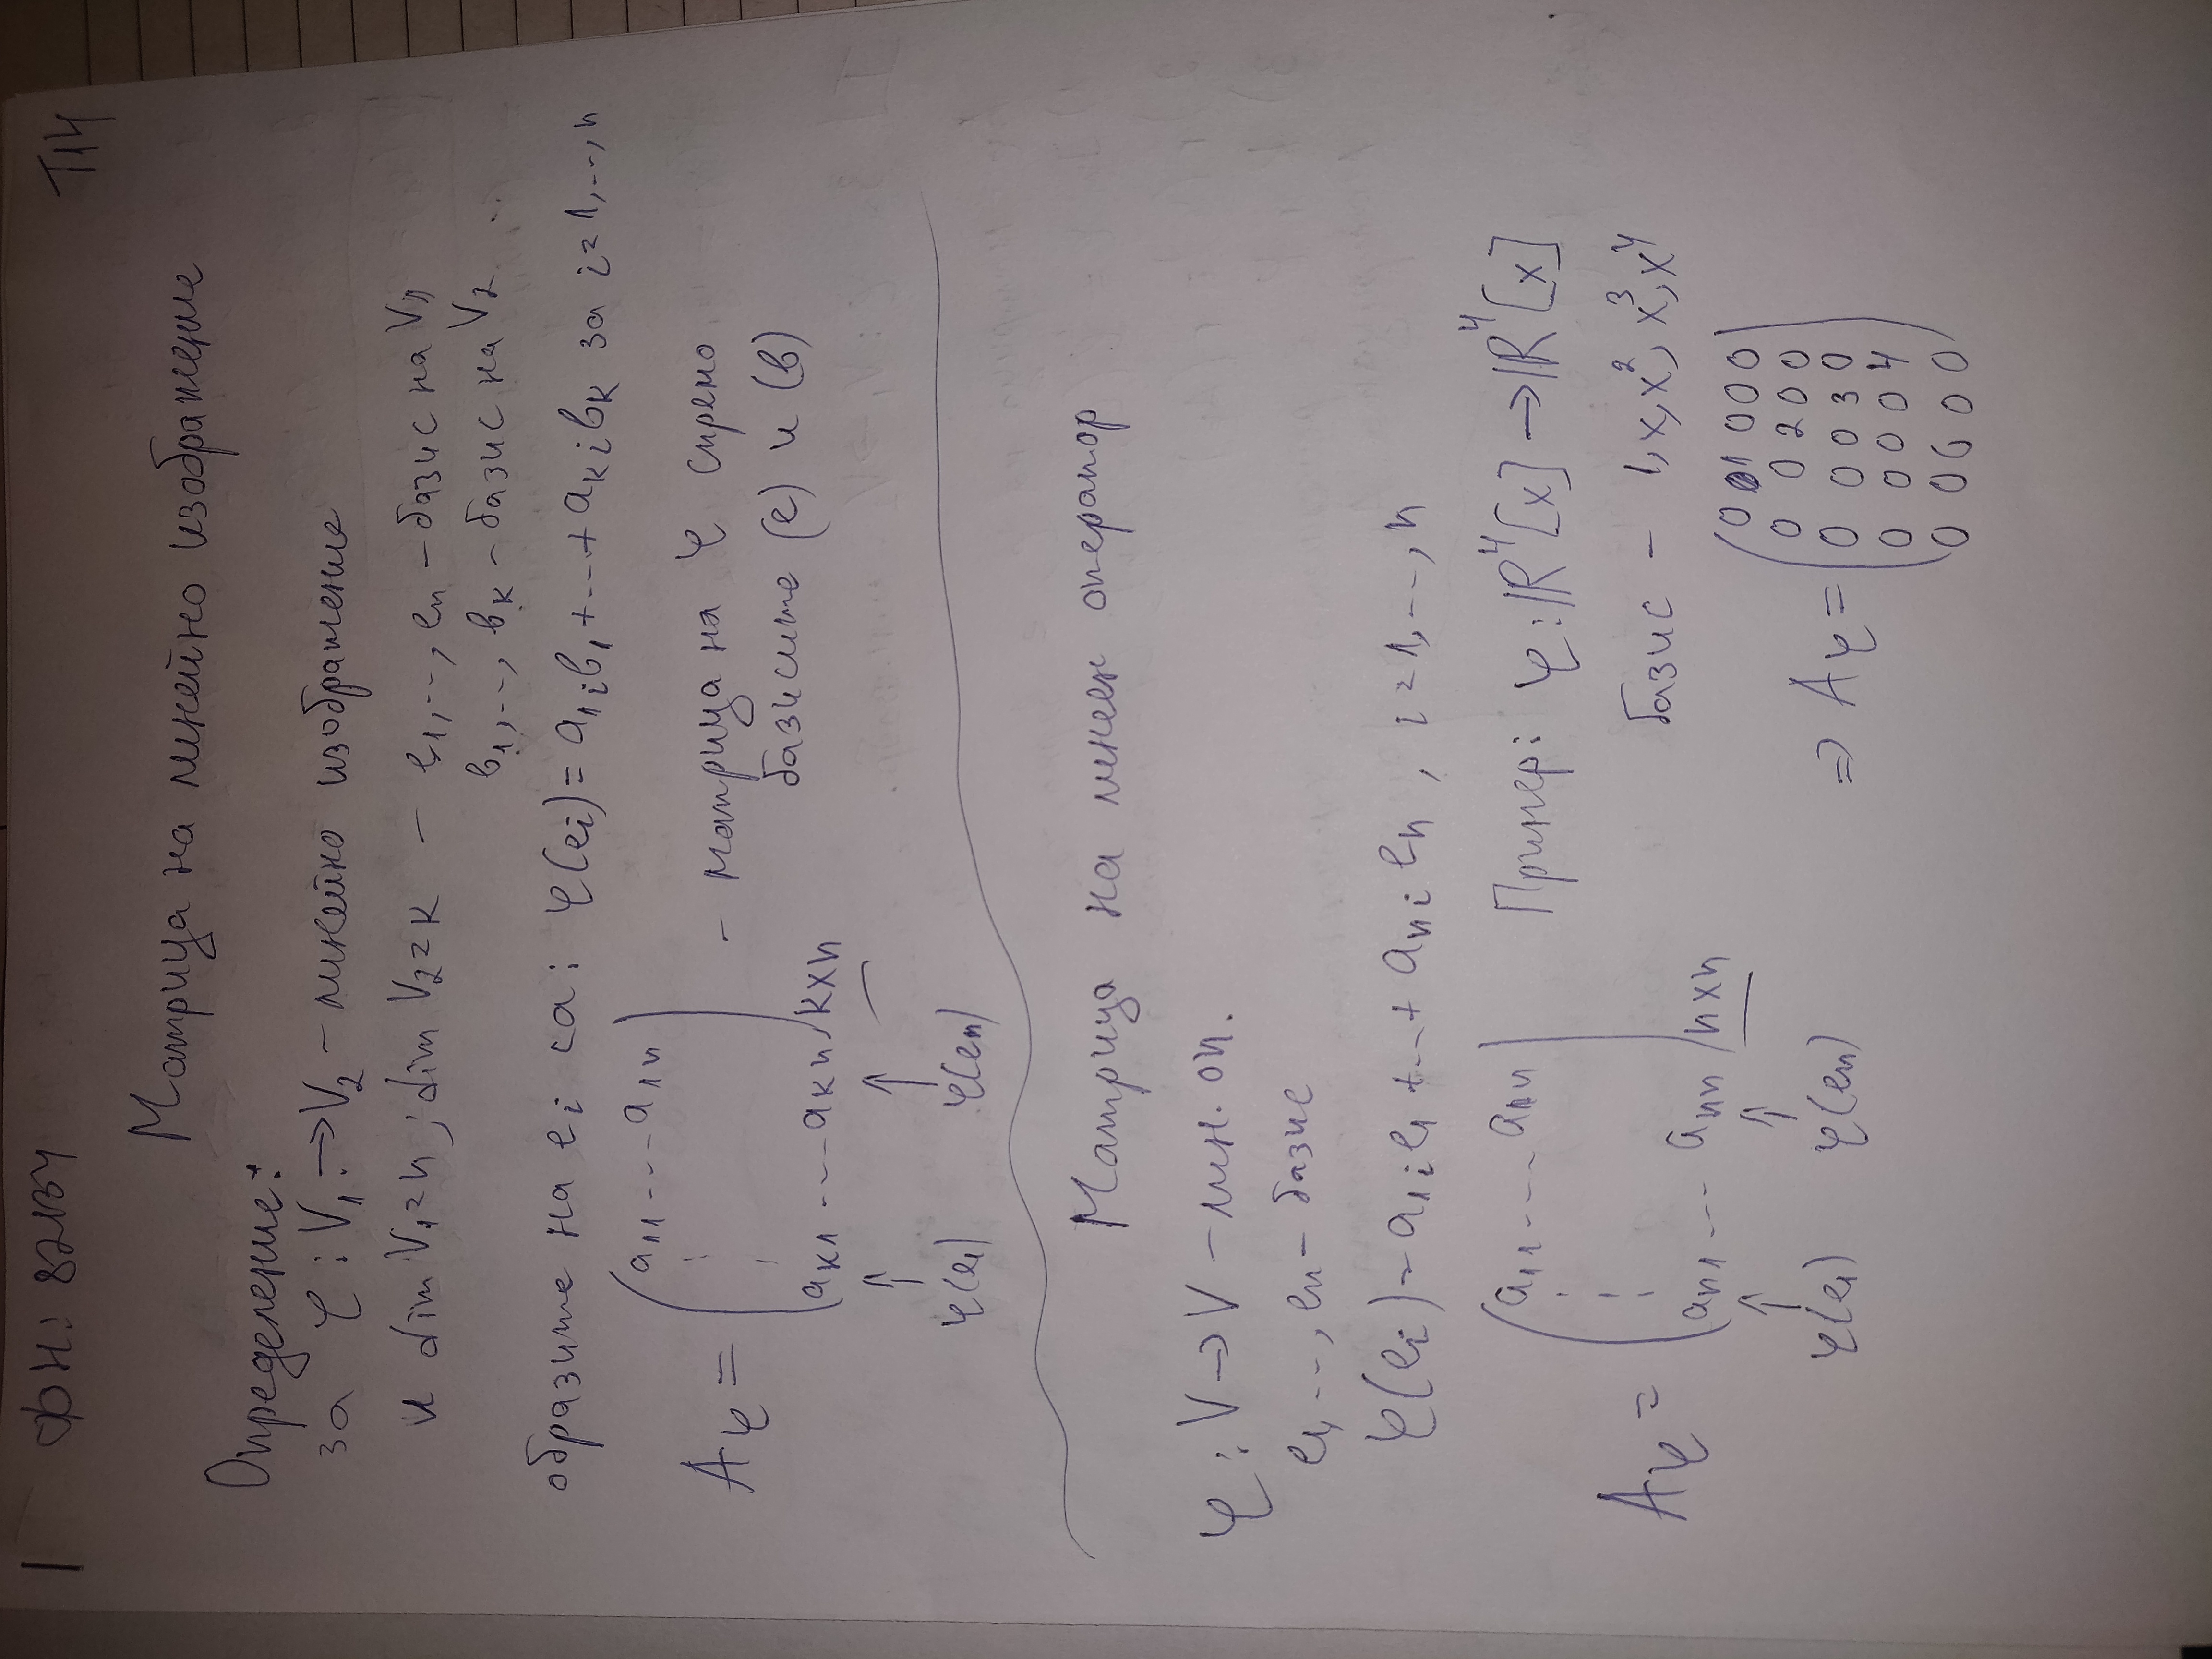 1 ФН: 82134 Т14
Матрица на линейно изображение
Определение:
за φ : V₁ → V₂ – линейно изображение
и dim V₁ = n ; dim V₂ = k – e₁, ..., eₙ – базис на V₁
b₁, ..., bₖ – базис на V₂
образите на eᵢ са: φ(eᵢ) = a₁ᵢb₁ + ... + aₖᵢbₖ за i = 1, ..., n
a₁₁ ... a₁ₙ
A_φ = – матрица на φ спрямо
базисите (e) и (b)
aₖ₁ ... aₖₙ k×n
↑ ↑
φ(e₁) φ(eₙ)
Матрица на линеен оператор
φ : V → V – лин. оп.
e₁, ..., eₙ – базис
φ(eᵢ) = a₁ᵢe₁ + ... + aₙᵢeₙ , i = 1, ..., n
a₁₁ ... a₁ₙ
A_φ =
aₙ₁ ... aₙₙ n×n
↑ ↑
φ(e₁) φ(eₙ)
Пример: φ : ℝ⁴[x] → ℝ⁴[x]
базис – 1, x, x², x³, x⁴
0 1 0 0 0
0 0 2 0 0
⇒ A_φ = 0 0 0 3 0
0 0 0 0 4
0 0 0 0 0